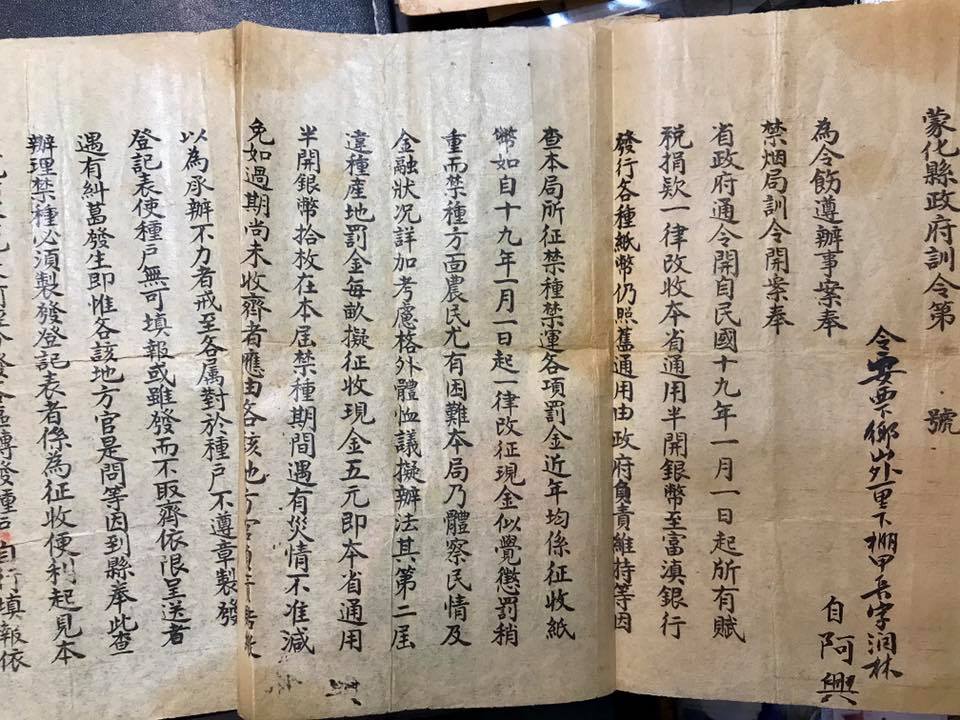 蒙化縣政府訓令第 號
令安西下鄉山外一里下棚甲長字潤林
自阿興
為令飭遵辦事案奉
禁烟局訓令開案奉
省政府通令開自民國十九年一月一日起所有賦
稅捐欵一律改收本省通用半開銀幣至富滇銀行
發行各種紙幣仍照舊通用由政府負責維持等因
查本局所征禁種禁運各項罰金近年均係征收紙
幣如自十九年一月一日起一律改征現金似覺懲罰稍
重而禁種方面農民尤有困難本局乃體察民情及
金融狀况詳加考慮格外體恤議擬辦法其第二屆
違種產地罰金每畝擬征收現金五元即本省通用
半開銀幣拾枚在本屆禁種期間遇有災情不准減
免如過期尚未收齊者應由各該地方官
以為承辦不力者戒至各属對於種戶不遵章製發
登記表使種戶無可填報或雖發而不取齊依限呈送者
遇有糾葛發生即惟各該地方官是問等因到縣奉此查
辦理禁種必須製發登記表者係為征收便利起見本
區轉發種戶自行填報依